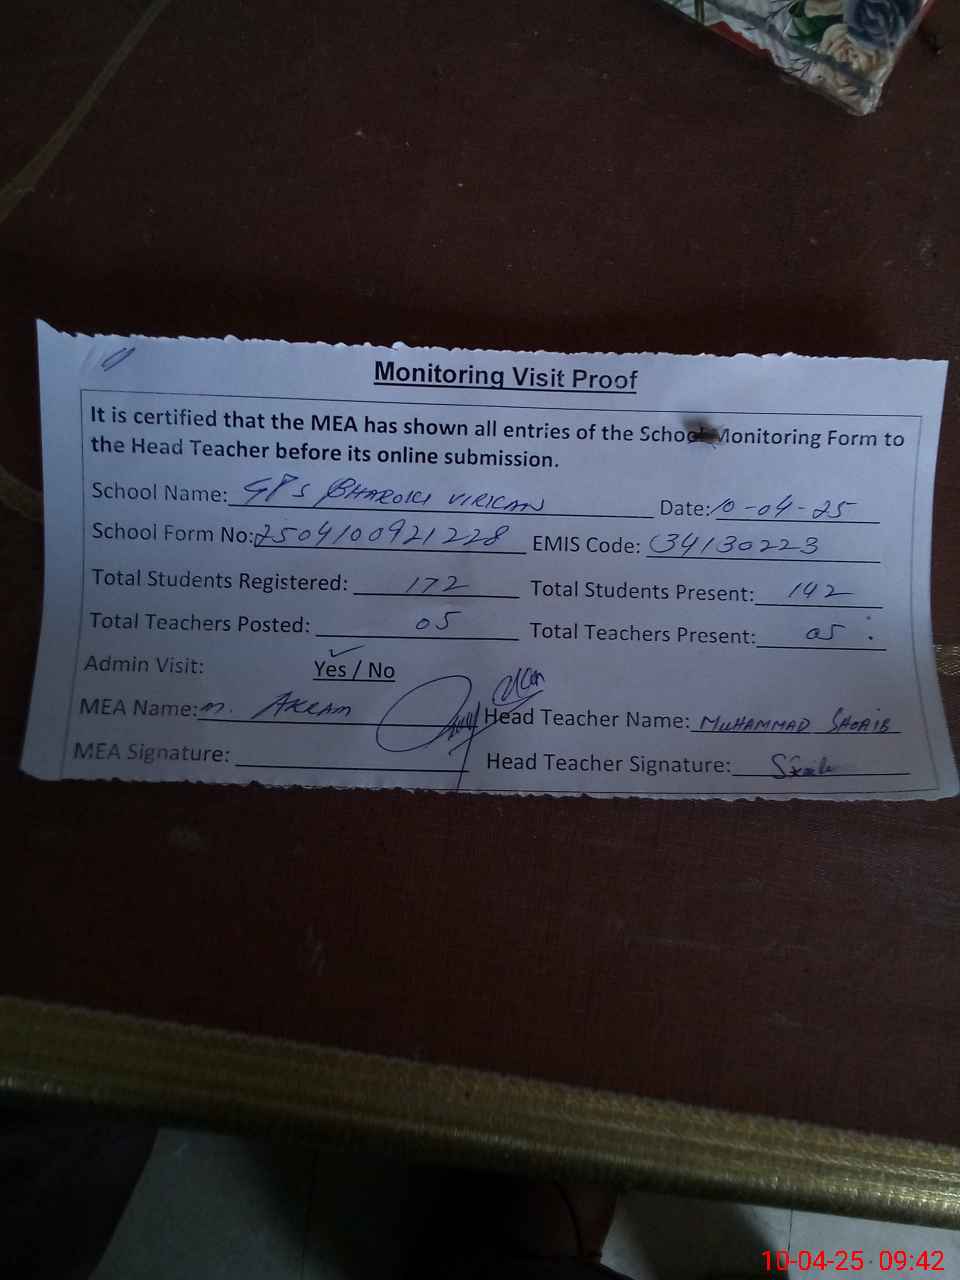 Monitoring Visit Proof
It is certified that the MEA has shown all entries of the School Monitoring Form to
the Head Teacher before its online submission.
School Name: GPS BHAROKI VIRKAN Date: 10-04-25
School Form No: 2504100921228 EMIS Code: 34130223
Total Students Registered: 172 Total Students Present: 142
Total Teachers Posted: 05 Total Teachers Present: 05
Admin Visit: Yes / No
MEA Name: M. AKRAM Head Teacher Name: MUHAMMAD SHOAIB
MEA Signature: Head Teacher Signature: Shoaib
10-04-25 09:42